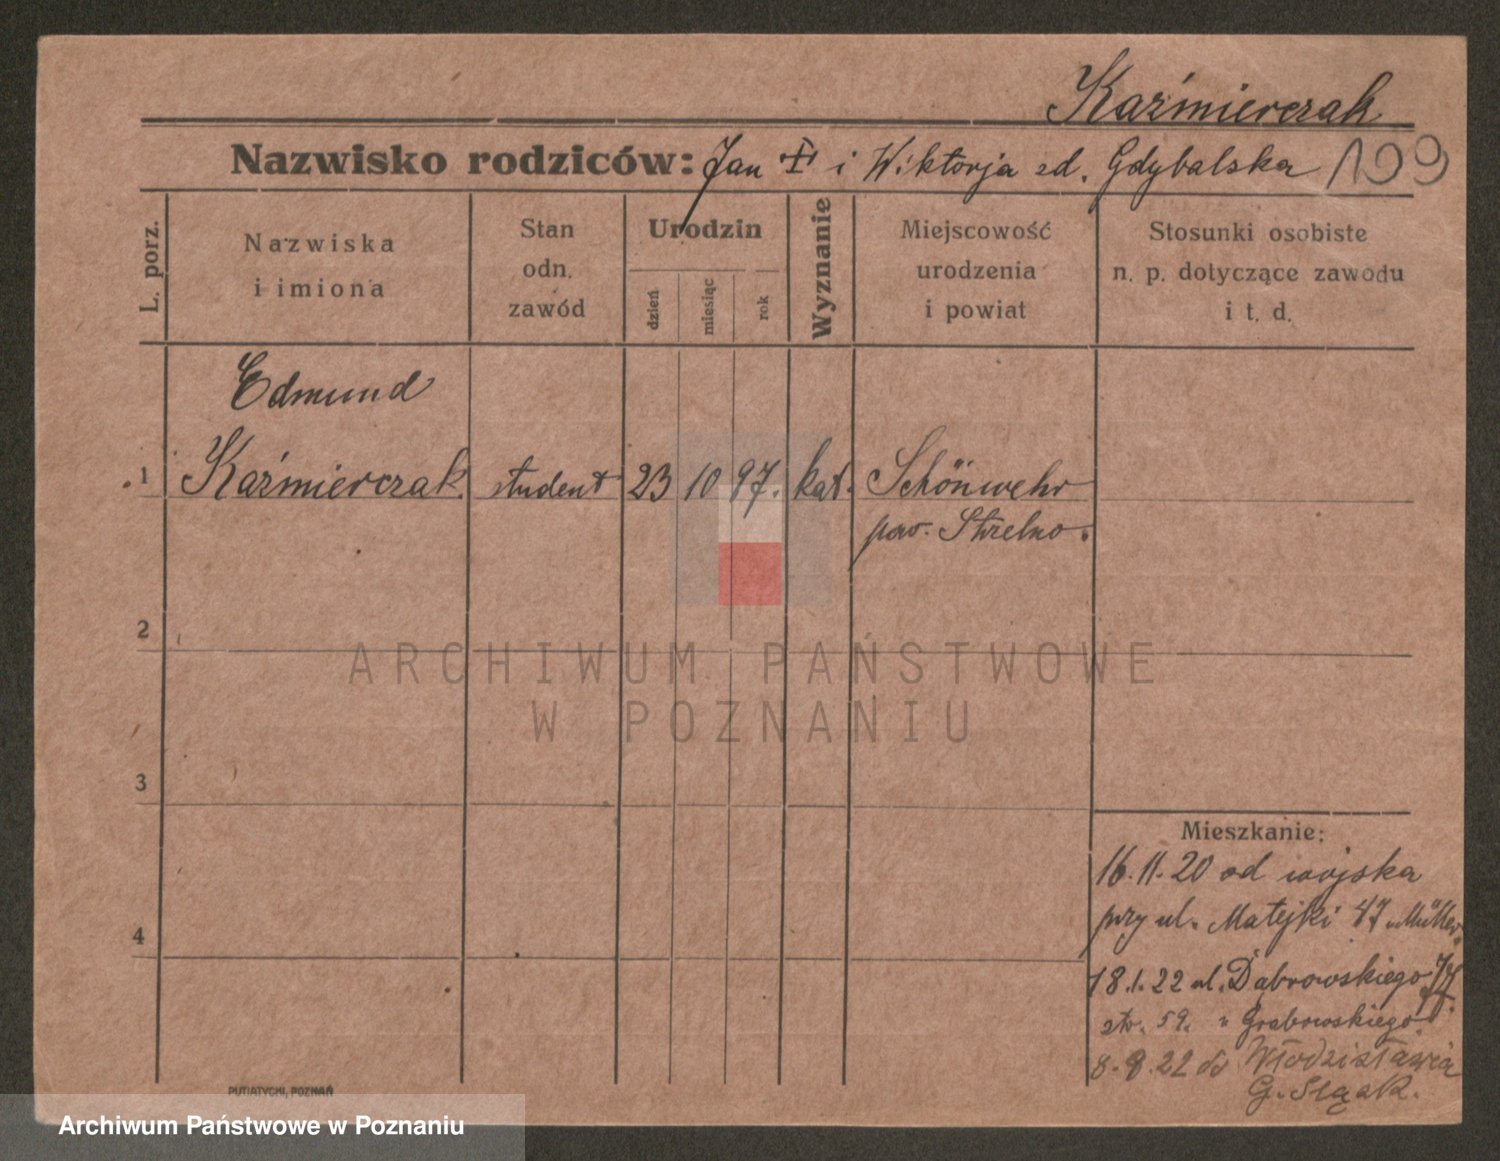 Kaźmierczak
Nazwisko rodziców: Jan i Wiktorja zd. Gdybalska 109
L. porz.
Nazwiska
i imiona
Stan
odn.
zawód
Urodzin
dzień
miesiąc
rok
Wyznanie
Miejscowość
urodzenia
i powiat
Stosunki osobiste
n. p. dotyczące zawodu
i t. d.
Edmund
1 Kaźmierczak student 23 10 97. kat. Schönwehr
pow. Strelno.
2
3
4
Mieszkanie:
16.11.20 od wojska
przy ul. Matejki 47 u Müller.
18.1.22 ul. Dąbrowskiego
str. 59. u Grabowskiego
8.9.22 do Włodzisławia
G. Sląsk.
PUTIATYCKI, POZNAŃ
ARCHIWUM PAŃSTWOWE
W POZNANIU
Archiwum Państwowe w Poznaniu